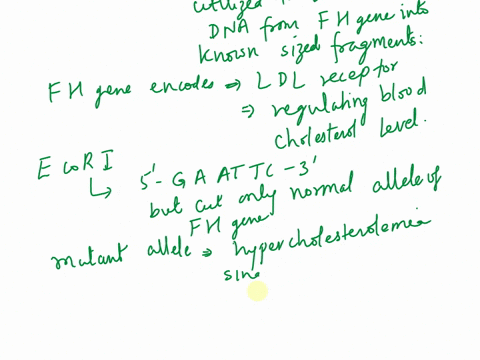 utilized
DNA from FH gene into
known sized fragments:
FH gene encodes ⇒ LDL receptor
⇒ regulating blood
cholesterol level.
E coRI
↳ 5'-GAATTC-3'
but cut only normal allele of
FH gene
mutant allele ⇒ hypercholesterolemia
sinc